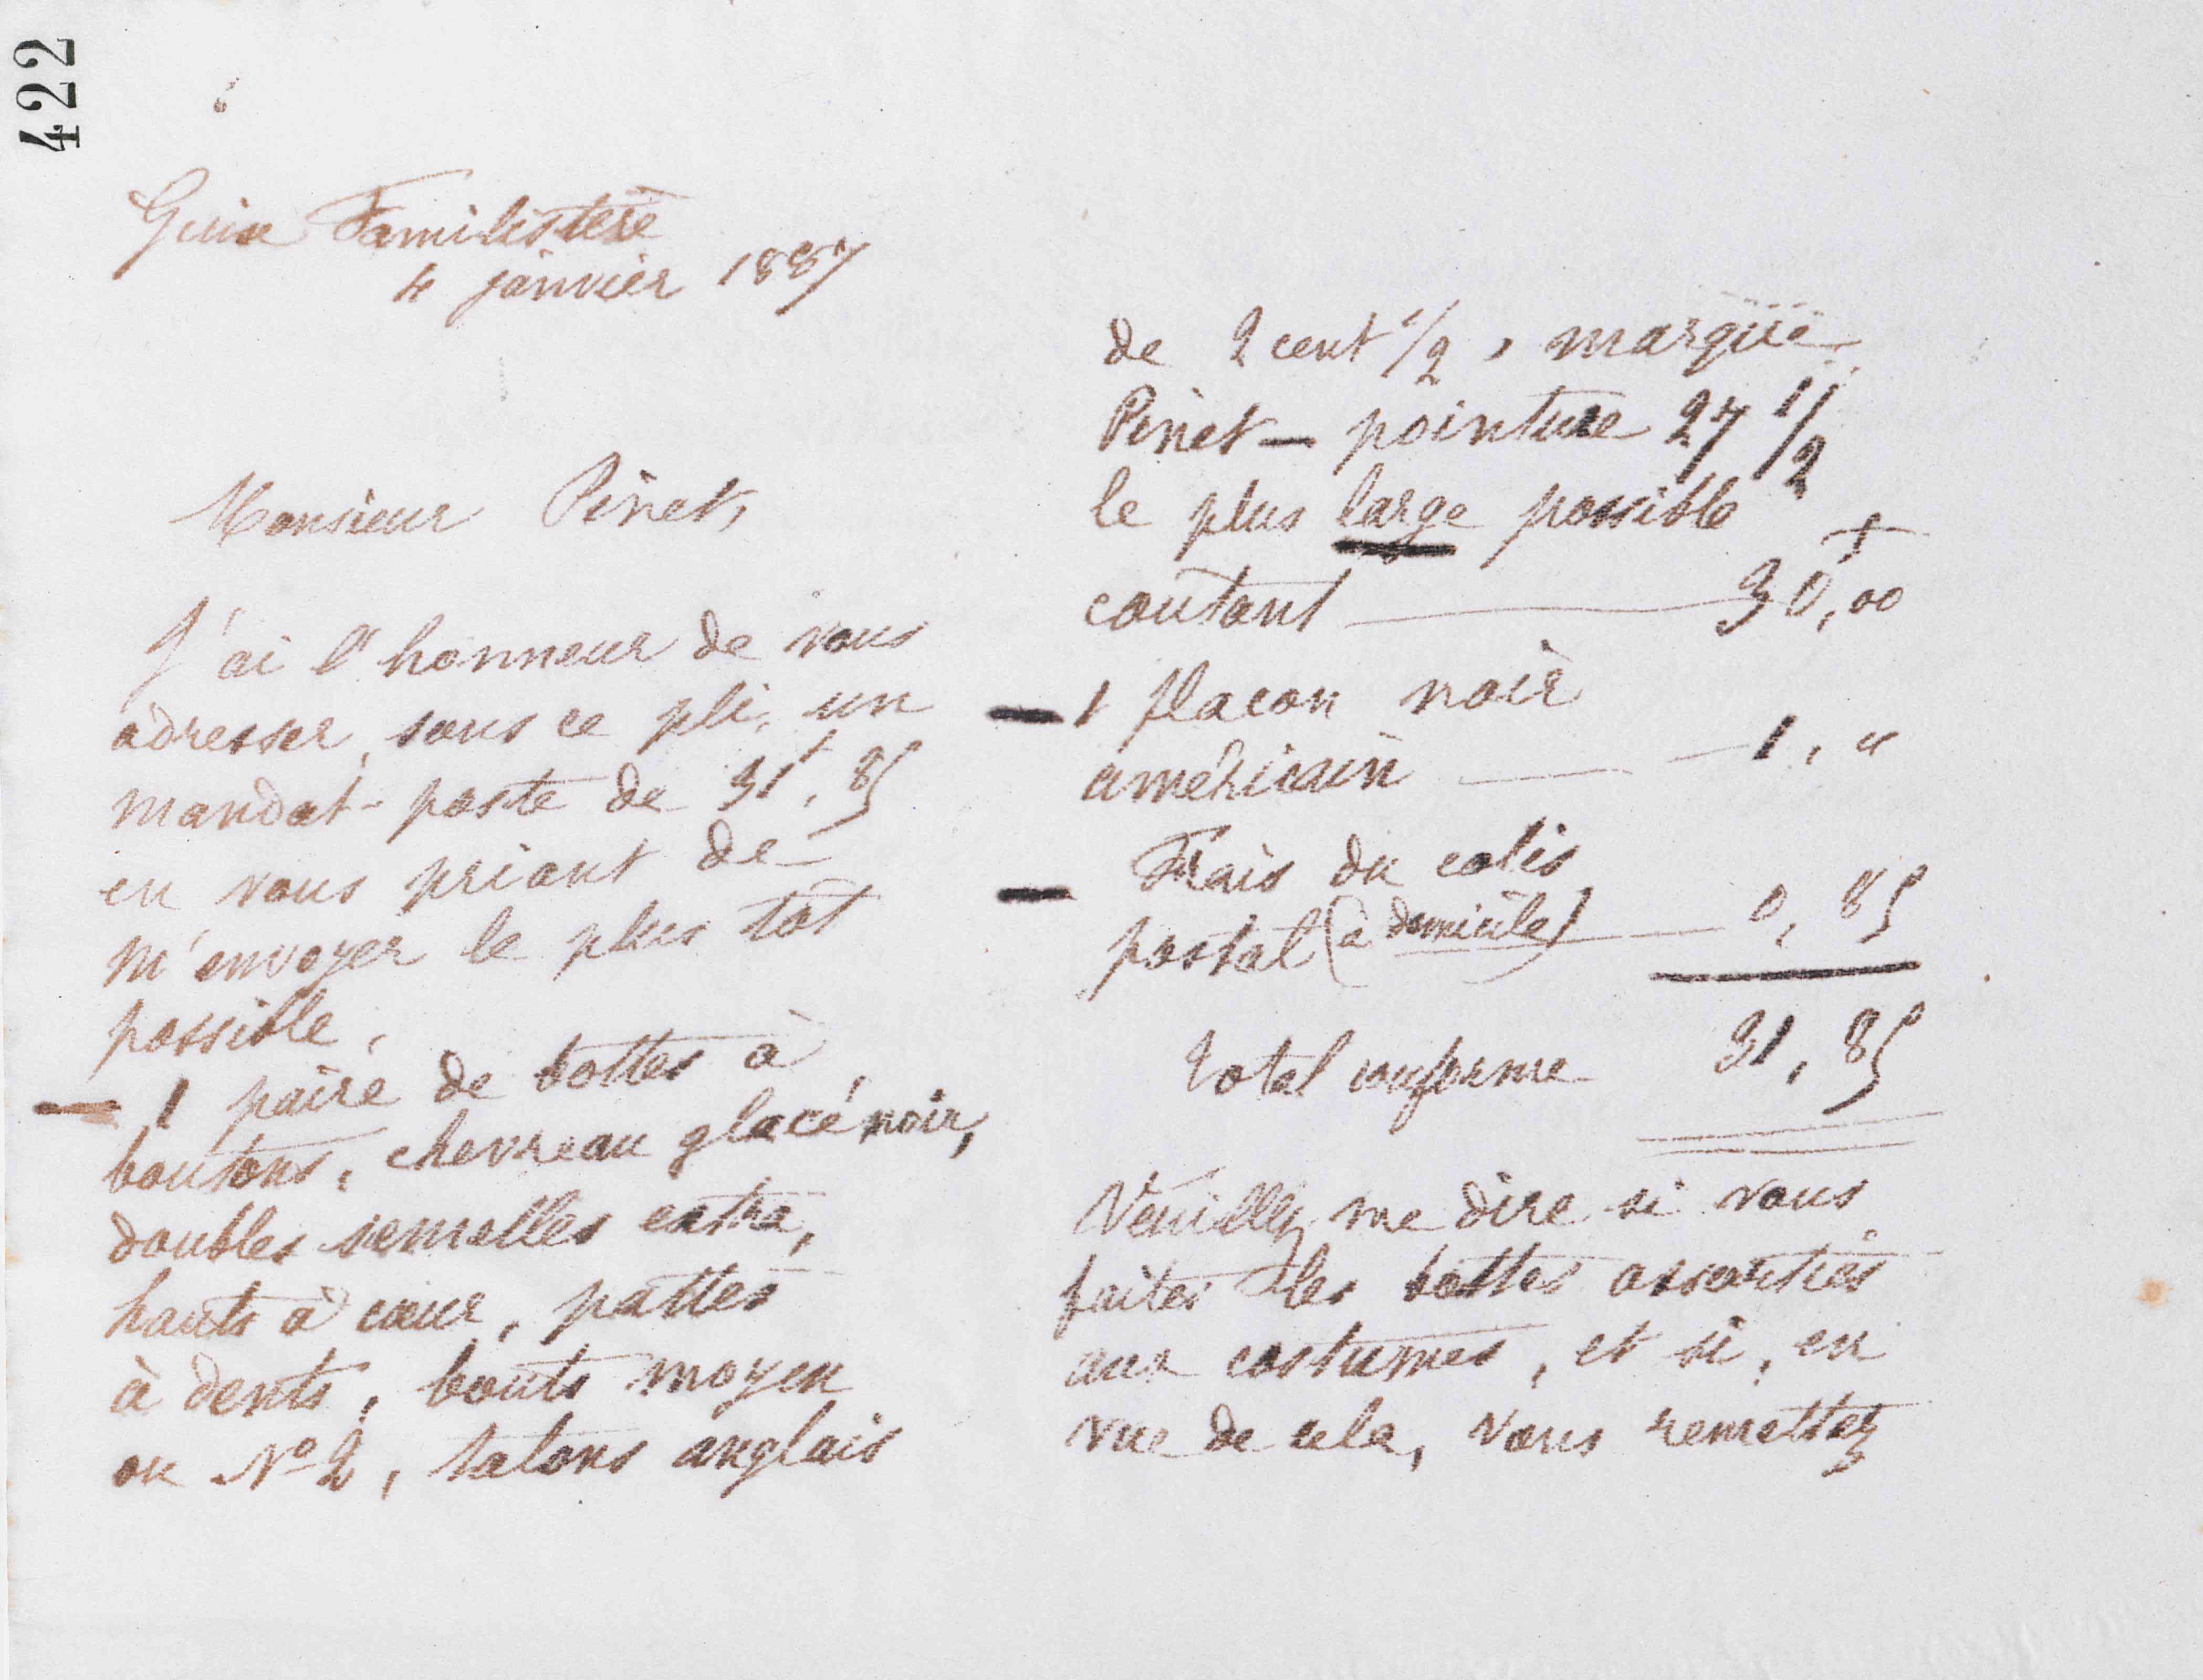 422
Guise Familistère
4 janvier 1887
Monsieur Pinet,
J'ai l'honneur de vous
adresser, sous ce pli, un
mandat-poste de 31f,85
en vous priant de
m'envoyer le plus tôt
possible,
— 1 paire de bottes à
boutons, chevreau glacé noir,
doubles semelles extra,
hauts à cœur, pattes
à dents, bouts moyen
ou No 2, talons anglais
de 2 cent 1/2, marque
Pinet — pointure 27 1/2
le plus large possible
coutant — 30f,00
— 1 flacon noir
américain — 1, "
— Frais du colis
postal (à domicile) — 0,85
Total conforme 31,85
Veuillez me dire si vous
faites les bottes assorties
aux costumes, et si, en
vue de cela, vous remettez